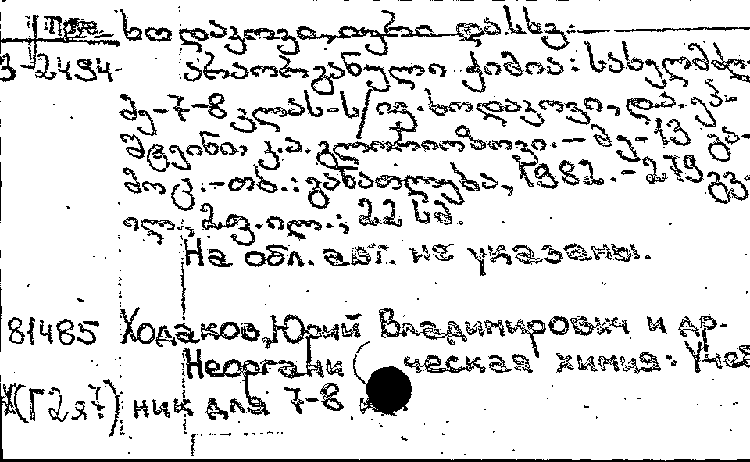 ხოდაკოვი, იური და სხვ.
3-2494 არაორგანული ქიმია: სახელმძღ.
მე-7-8 კლას-ს / იუ. ხოდაკოვი, და. ეპ-
შტეინი, პ. ა. გლორიოზოვი. — მე-13 გა-
მოც. — თბ.: განათლება, 1982. - 279 გვ.
ილ., 2 ფ. ილ.; 22 სმ.
На обл. авт. не указаны.
81485 Ходаков, Юрий Владимирович и др.
Неоргани ческая химия: Учеб
Х(Г2я7) ник для 7-8